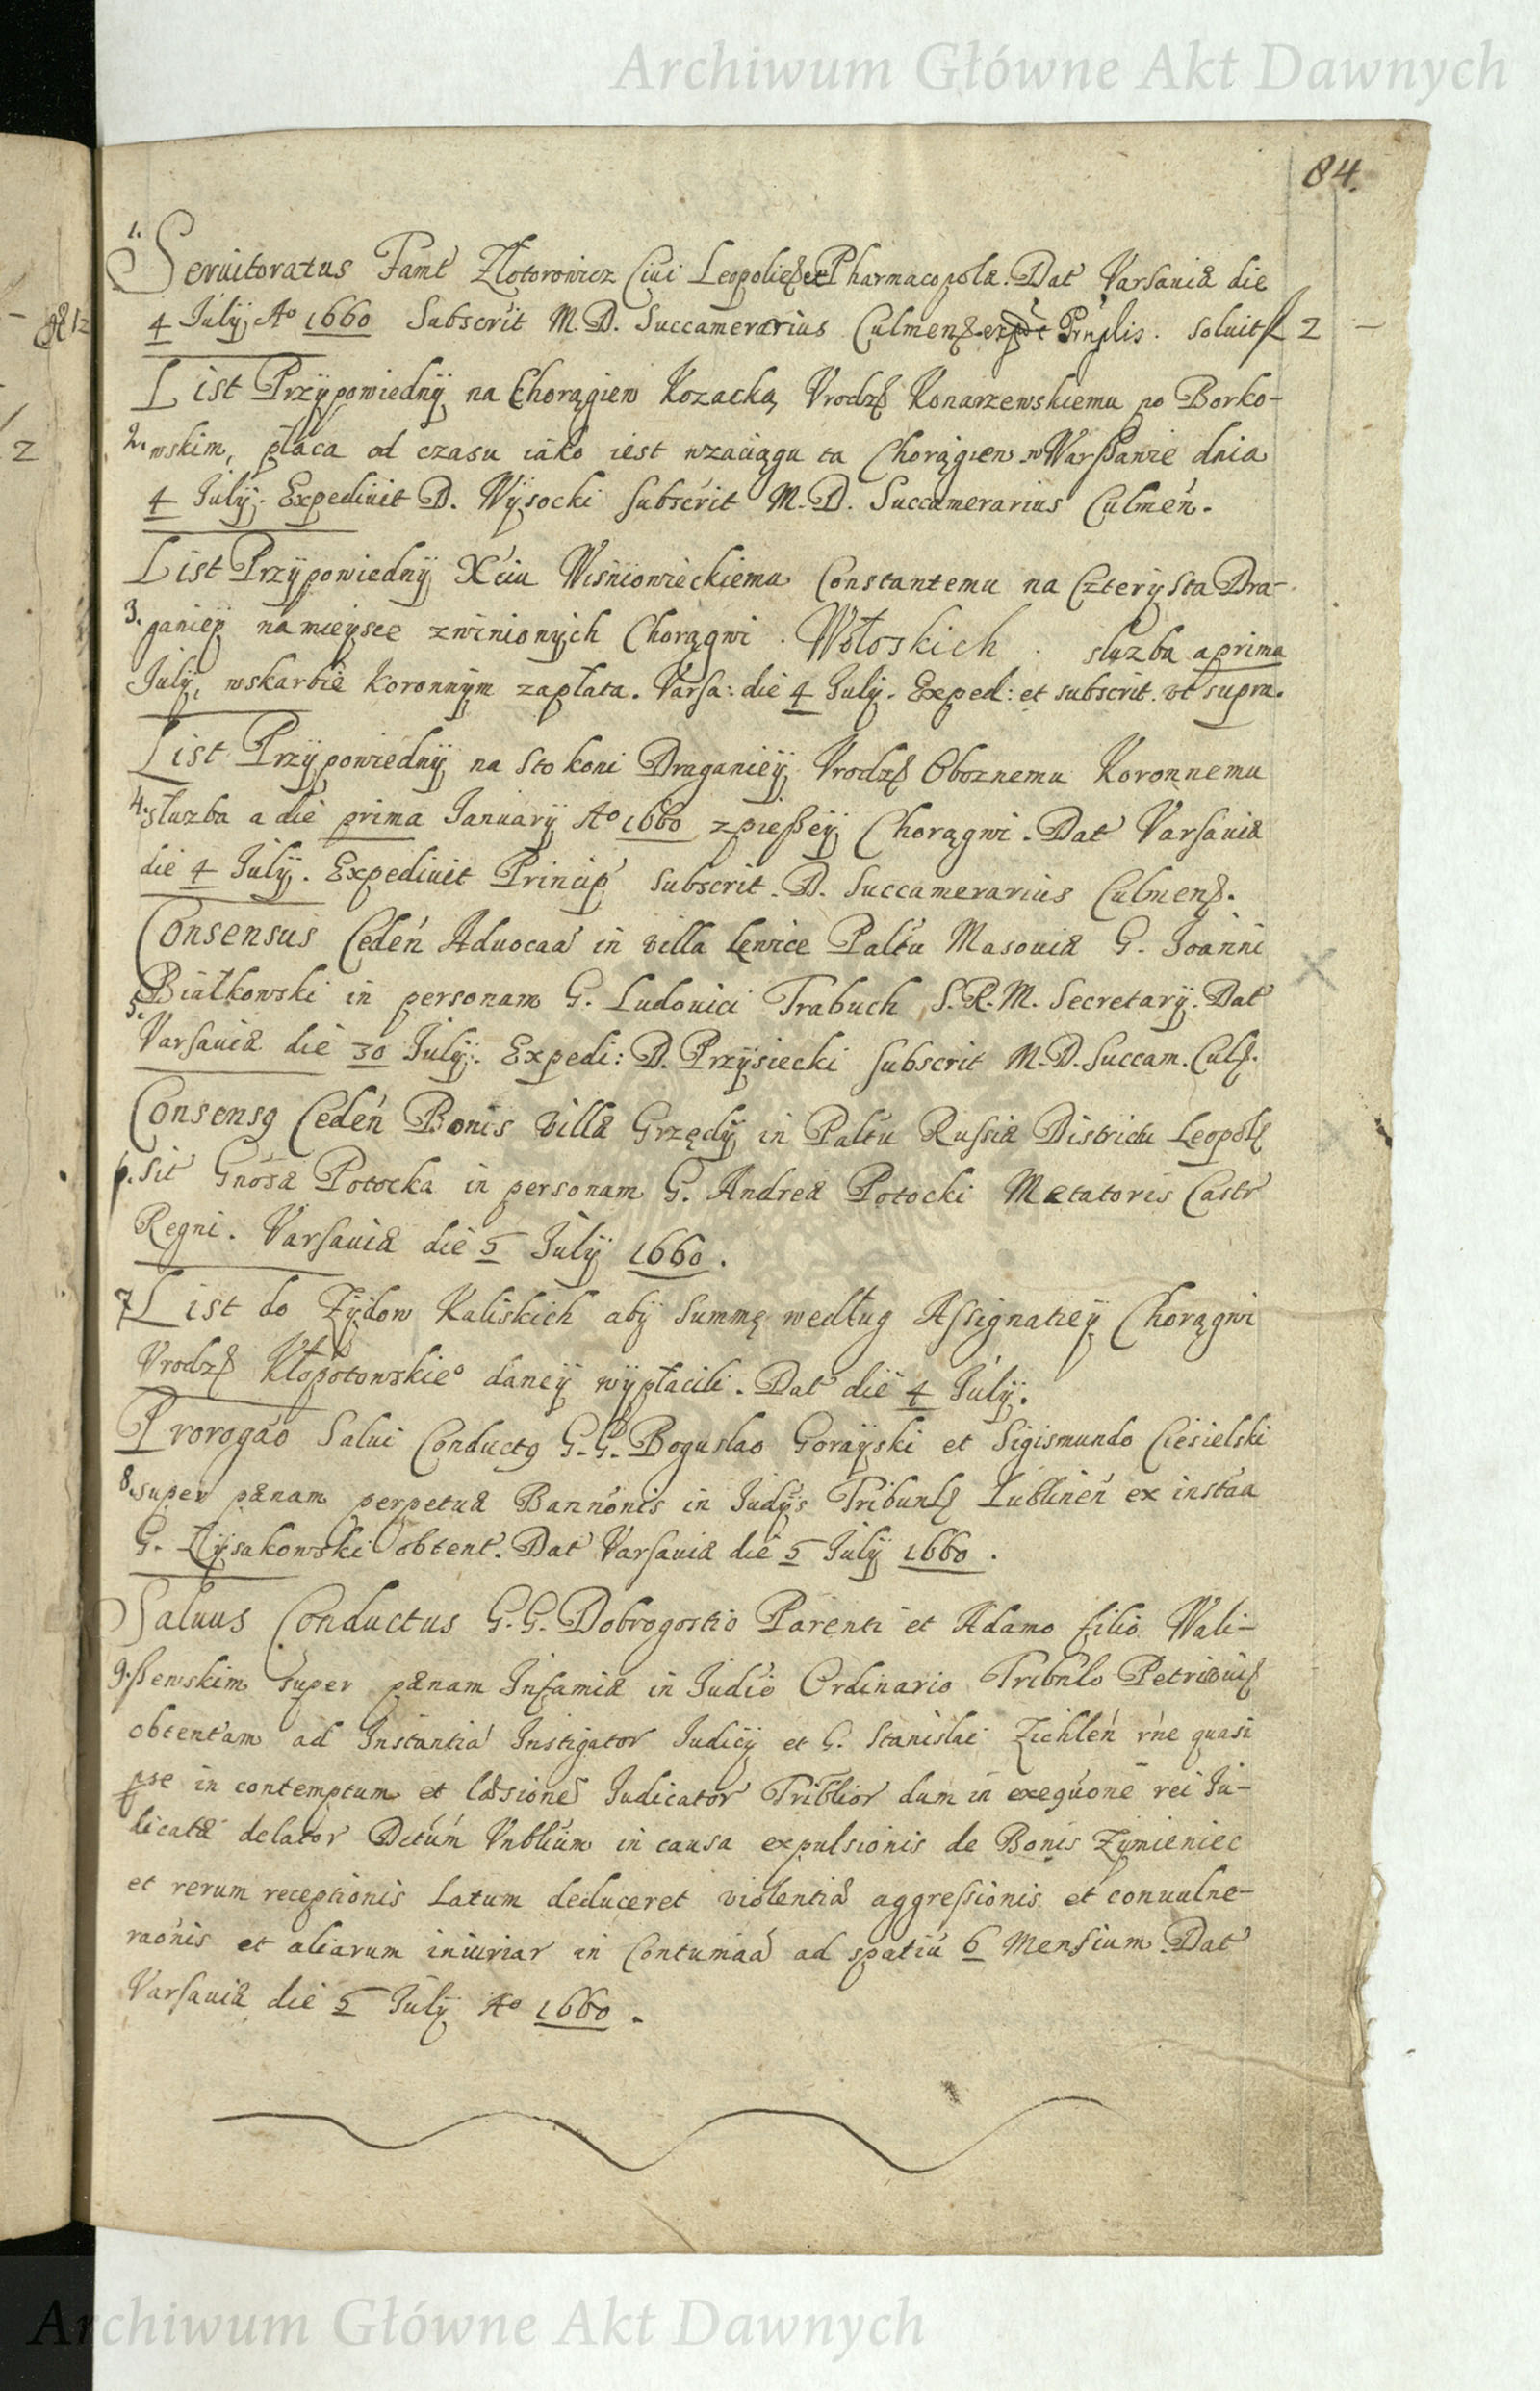 Archiwum Główne Akt Dawnych
84.
1. Seruitoratus Famt Złotorowicz Ciui Leopoließ et Pharmacopolæ. Dat Varsauiæ die
4 July Ao 1660 Subscrit M. D. Succamerarius Culmenß. soluit f 2 —
List Przypowiedny na Chorągiew Kozacką Vrodzß Konarzewskiemu po Borko-
2. wskim, płaca od czasu iako iest wzaciągu ta Chorągiew. w Warßawie dnia
4 July. Expediuit D. Wysocki subscrit M. D. Succamerarius Culmen.
List Przypowiedny Xciu Wisniowieckiemu Constantemu na Czterysta Dra-
3. ganiey na mieysce zwinionych Chorągwi. Wołoskich. służba a prima
July, wskarbie Koronnym zapłata. Varsa: die 4 July. Exped: et subscrit. vt supra.
List Przypowiedny na sto koni Draganiey Vrodzß Oboznemu Koronnemu
4. służba a die prima January Ao 1660 z pießey Chorągwi. Dat Varsauiæ
die 4 July. Expediuit Princip subscrit. D. Succamerarius Culmenß.
Consensus Ceden Aduocaa in villa Lewice Paltu Masouiæ G. Joanni
5. Białkowski in personam G. Ludouici Trabuch S. R. M. Secretary. Dat
Varsauiæ die 30 July. Expedi: D. Przysiecki subscrit M. D. Succam. Culß.
Consens9 Ceden Bonis villæ Grzędy in Paltu Russiæ Districtu Leopolß
6. sit Gnosæ Potocka in personam G. Andreæ Potocki Metatoris Castr
Regni. Varsauiæ die 5 July 1660.
7 List do Zydow Kaliskich aby summę według Assignatiey Chorągwi
Vrodzß Kłopotowskieo daney wypłacili. Dat die 4 July.
Prorogao Salui Conduct9 G. G. Boguslao Gorayski et Sigismundo Ciesielski
8. super pænam perpetuæ Bannonis in Judys Tribunlß Lublinen ex instaa
G. Łysakowski obtent. Dat Varsauiæ die 5 July 1660.
Saluus Conductus G. G. Dobrogostio Parenti et Adamo filio Wali-
9. ßewskim super pænam Infamiæ in Judio Ordinario Tribnlo Petricouiß
obtentam ad Instantia Instigator Judicy et G. Stanislai Zichlen rne quasi
pse in contemptum et læsione Judicator Triblior dum in exeguone rei Ju-
dicatæ delator Dctum Vnblium in causa expulsionis de Bonis Zymieniec
et rerum receptionis Latum deduceret violentia aggressionis et conuulne-
raonis et aliarum iniuriar in Contumaa ad spatiu 6 Mensium. Dat
Varsauiæ die 5 July Ao 1660.
Archiwum Główne Akt Dawnych